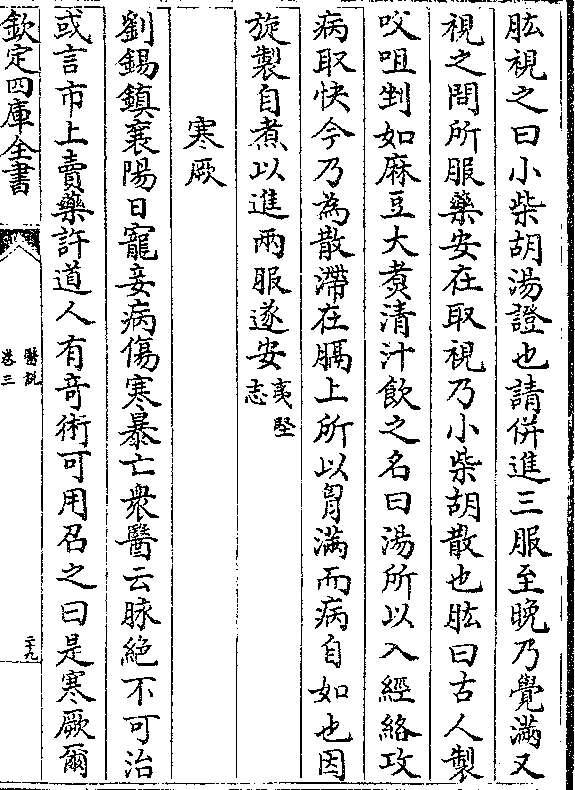 肱視之曰小柴胡湯證也請併進三服至晩乃覺滿又
視之問所服藥安在取視乃小柴胡散也肱曰古人製
㕮咀剉如麻豆大煑清汁飲之名曰湯所以入經絡攻
病取快今乃為散滯在膈上所以胷滿而病自如也因
旋製自煮以進兩服遂安夷堅志
寒厥
劉錫鎮襄陽日寵妾病傷寒暴亡衆醫云脉絶不可治
或言市上賣藥許道人有竒術可用召之曰是寒厥爾
欽定四庫全書
醫説
卷三
二十九